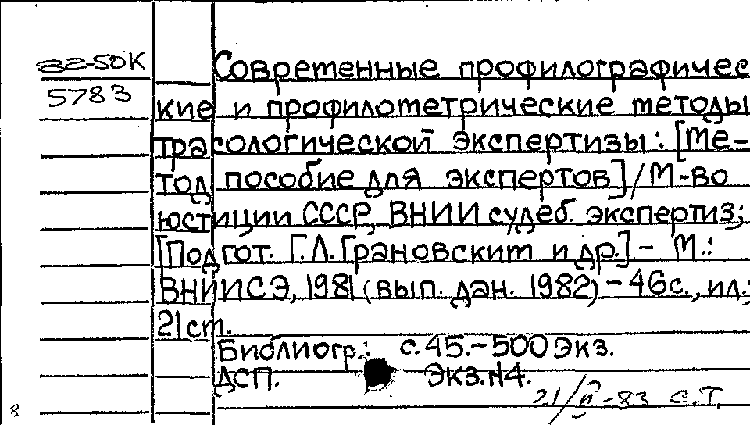 82-50К
5783
Современные профилографичес
кие и профилометрические методы
трасологической экспертизы: [Ме-
тод. пособие для экспертов] / М-во
юстиции СССР, ВНИИ судеб. экспертиз;
[Подгот. Г.Л. Грановским и др.] - М.:
ВНИИСЭ, 1981 (вып. дан. 1982) - 46с., ил.;
21 cm.
Библиогр.: с.45. - 500 экз.
ДСП. Экз. №4.
21/II-83 С.Т.
8